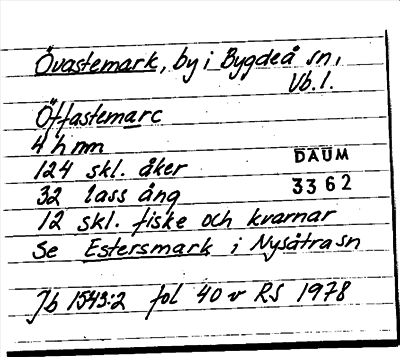 Övastemark, by i Bygdeå sn,
Vb.l.
Öffastemarc
4 hmn
124 skl. åker
DAUM
32 lass äng
3362
12 skl. fiske och kvarnar
Se Estersmark i Nysätra sn
Jb 1543:2 fol 40 v RS 1978